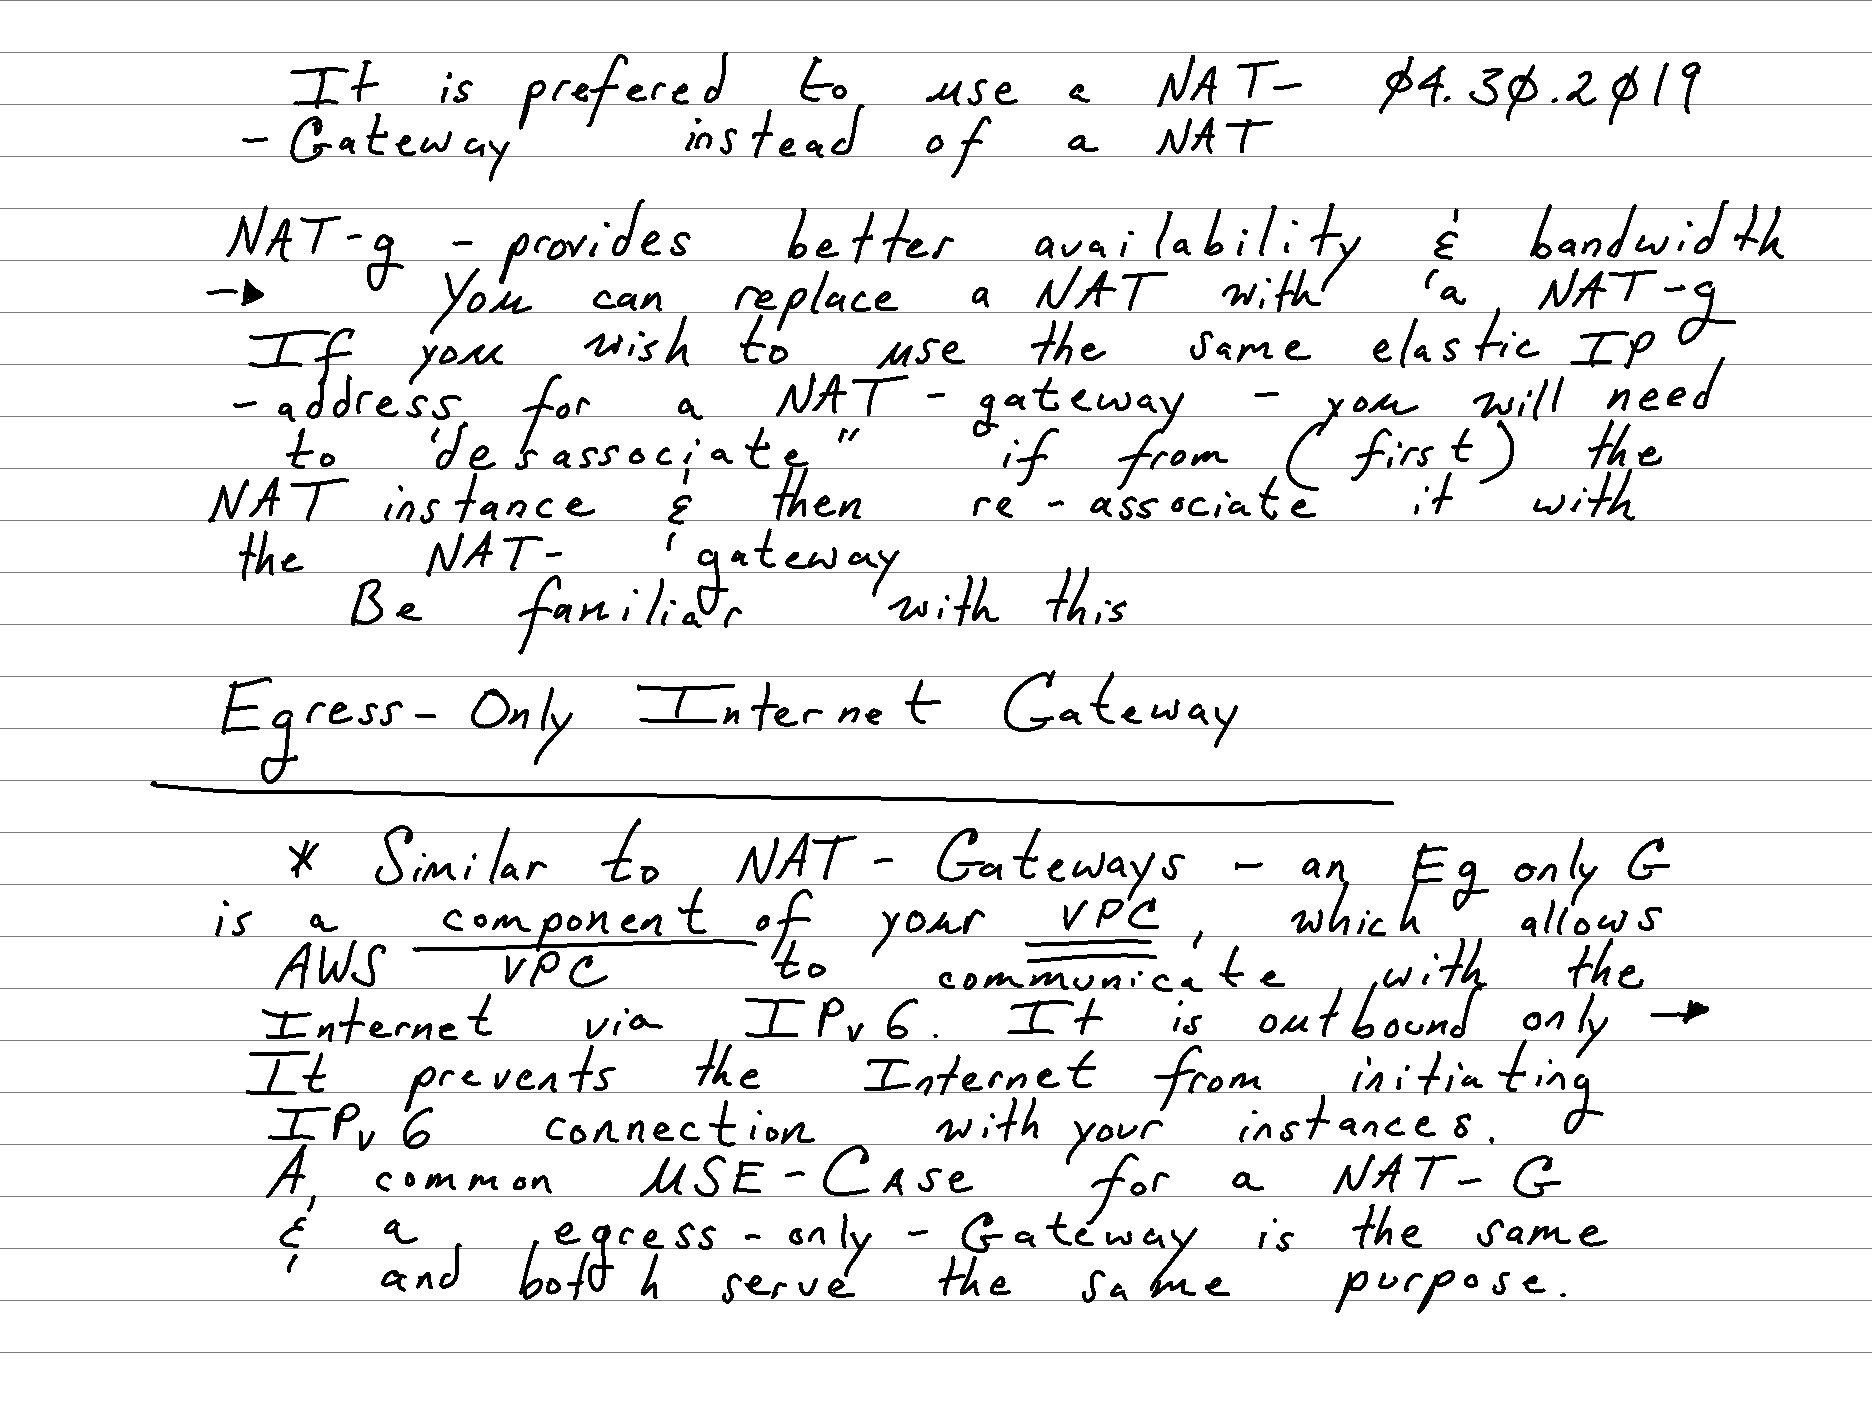 It is prefered to use a NAT- 04.30.2019
- Gateway instead of a NAT
NAT-g - provides better availability & bandwidth
→ You can replace a NAT with a NAT-g
If you wish to use the same elastic IP
- address for a NAT - gateway - you will need
to "desassociate" if from (first) the
NAT instance & then re-associate it with
the NAT- gateway
Be familiar with this
Egress-Only Internet Gateway
* Similar to NAT - Gateways - an Eg only G
is a component of your VPC, which allows
AWS VPC to communicate with the
Internet via IPv6. It is outbound only →
It prevents the Internet from initiating
IPv6 connection with your instances.
A common USE-CASE for a NAT-G
& a egress-only-Gateway is the same
and both serve the same purpose.